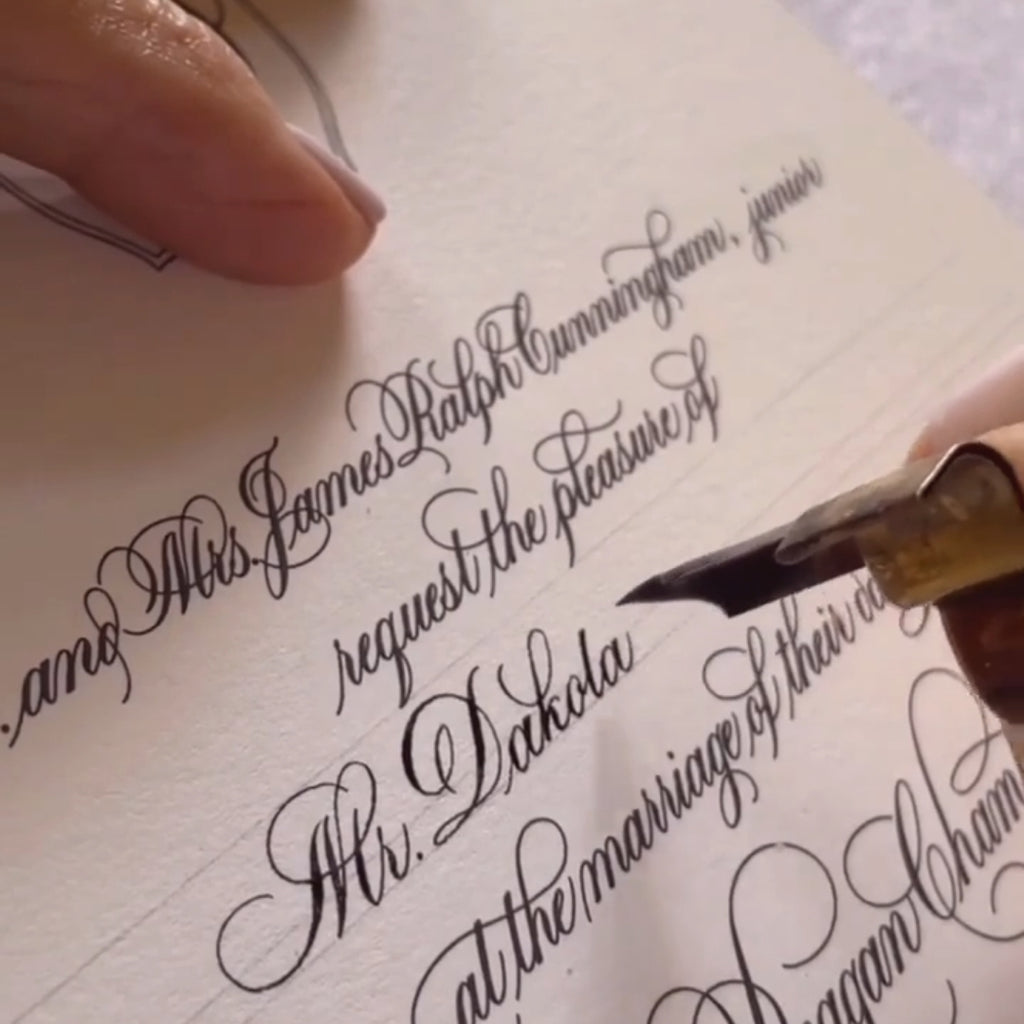 and Mrs. James Ralph Cunningham, junior
request the pleasure of
Mr. Dakota
at the marriage of their